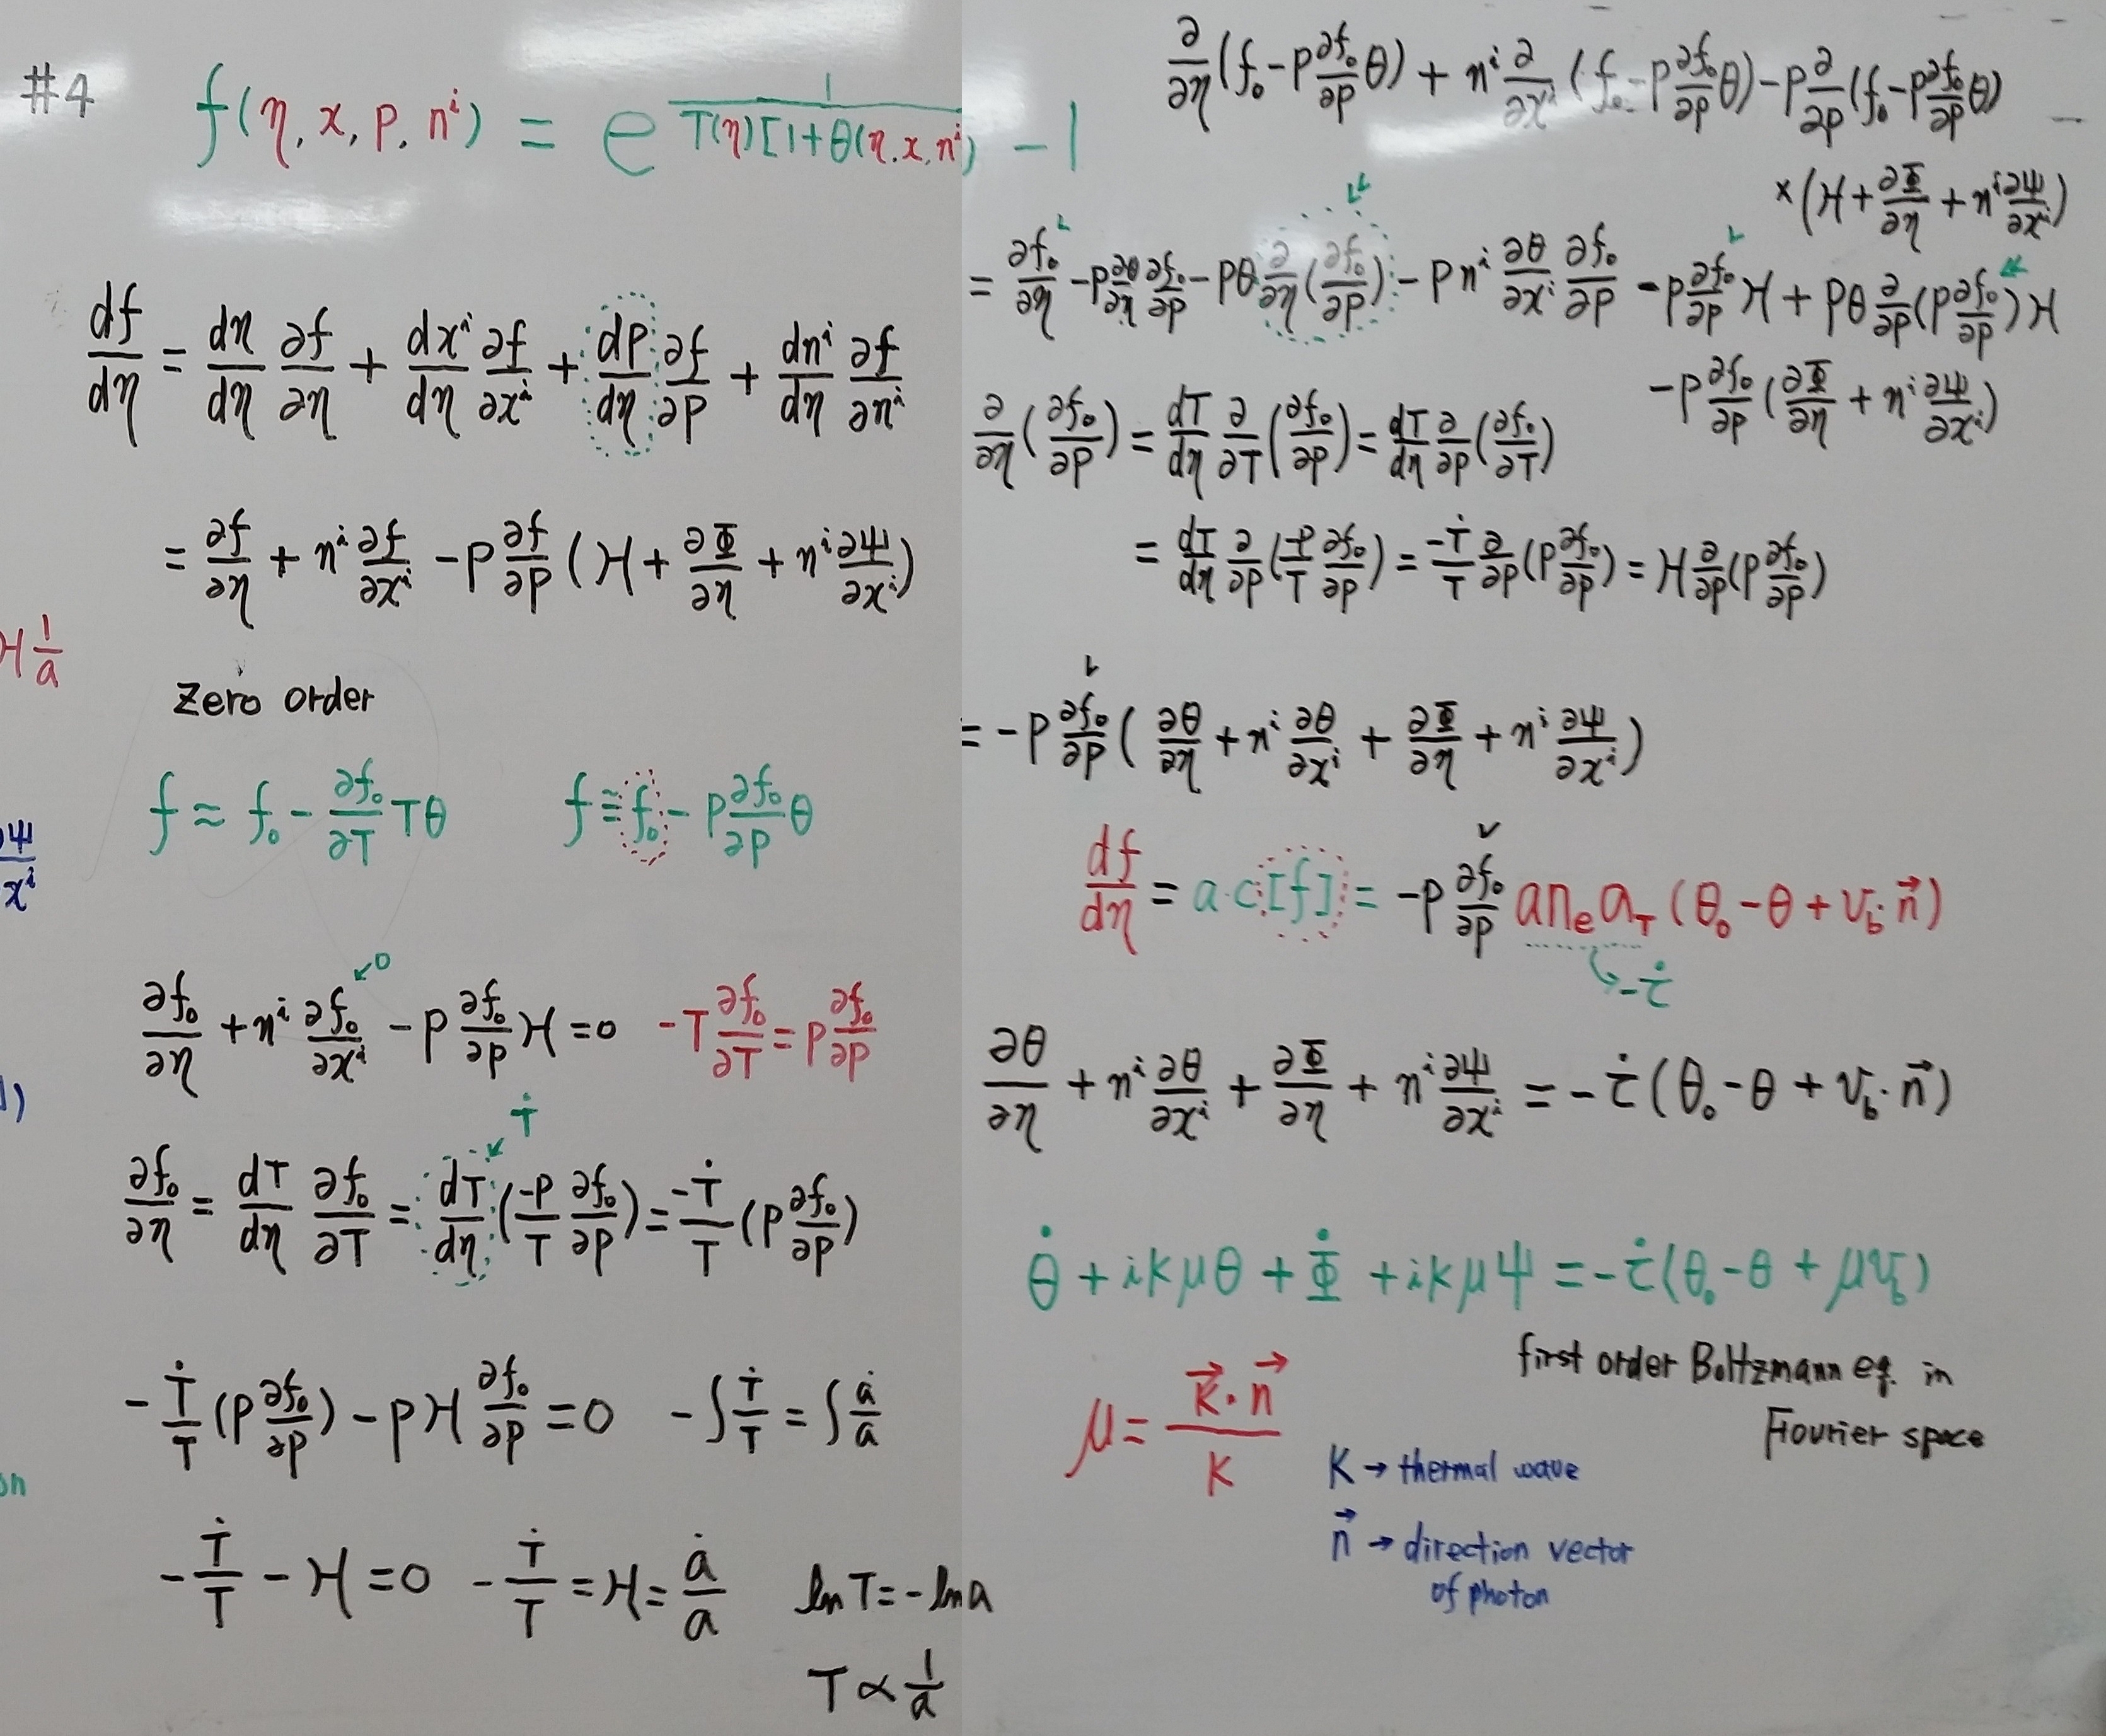 #4
f(η, x, p, nⁱ) = e 1/T(η)[1+θ(η,x,nⁱ) - 1
df/dη = dη/dη ∂f/∂η + dxⁱ/dη ∂f/∂xⁱ + dp/dη ∂f/∂p + dnⁱ/dη ∂f/∂nⁱ
= ∂f/∂η + nⁱ ∂f/∂xⁱ - p ∂f/∂p (H + ∂Φ/∂η + nⁱ ∂Ψ/∂xⁱ)
H 1/a
Zero order
f ≈ f₀ - ∂f₀/∂T Tθ f = f₀ - p ∂f₀/∂p θ
Ψ/xⁱ
∂f₀/∂η + nⁱ ∂f₀/∂xⁱ ↙0 - p ∂f₀/∂p H = 0 -T ∂f₀/∂T = p ∂f₀/∂p
∂f₀/∂η = dT/dη ∂f₀/∂T = dT/dη ↙Ṫ (-p/T ∂f₀/∂p) = -Ṫ/T (p ∂f₀/∂p)
-Ṫ/T (p ∂f₀/∂p) - pH ∂f₀/∂p = 0 -∫Ṫ/T = ∫ȧ/a
on
-Ṫ/T - H = 0 -Ṫ/T = H = ȧ/a ln T = -ln a
T ∝ 1/a
∂/∂η (f₀ - p ∂f₀/∂p θ) + nⁱ ∂/∂xⁱ (f₀ - p ∂f₀/∂p θ) - p ∂/∂p (f₀ - p ∂f₀/∂p θ)
×(H + ∂Φ/∂η + nⁱ ∂Ψ/∂xⁱ)
= ∂f₀/∂η - p ∂θ/∂η ∂f₀/∂p - pθ ∂/∂η (∂f₀/∂p) - p nⁱ ∂θ/∂xⁱ ∂f₀/∂p - p ∂f₀/∂p H + pθ ∂/∂p (p ∂f₀/∂p) H
- p ∂f₀/∂p (∂Φ/∂η + nⁱ ∂Ψ/∂xⁱ)
∂/∂η (∂f₀/∂p) = dT/dη ∂/∂T (∂f₀/∂p) = dT/dη ∂/∂p (∂f₀/∂T)
= dT/dη ∂/∂p (-p/T ∂f₀/∂p) = -Ṫ/T ∂/∂p (p ∂f₀/∂p) = H ∂/∂p (p ∂f₀/∂p)
= -p ∂f₀/∂p (∂θ/∂η + nⁱ ∂θ/∂xⁱ + ∂Φ/∂η + nⁱ ∂Ψ/∂xⁱ)
df/dη = a·c[f] = -p ∂f₀/∂p a nₑ σ_T (θ₀ - θ + v_b·n⃗)
↳ -τ̇
∂θ/∂η + nⁱ ∂θ/∂xⁱ + ∂Φ/∂η + nⁱ ∂Ψ/∂xⁱ = -τ̇(θ₀ - θ + v_b·n⃗)
θ̇ + ikμθ + Φ̇ + ikμψ = -τ̇(θ₀ - θ + μv_b)
first order Boltzmann eq. in
Fourier space
μ = k⃗·n⃗/k
K → thermal wave
n⃗ → direction vector
of photon